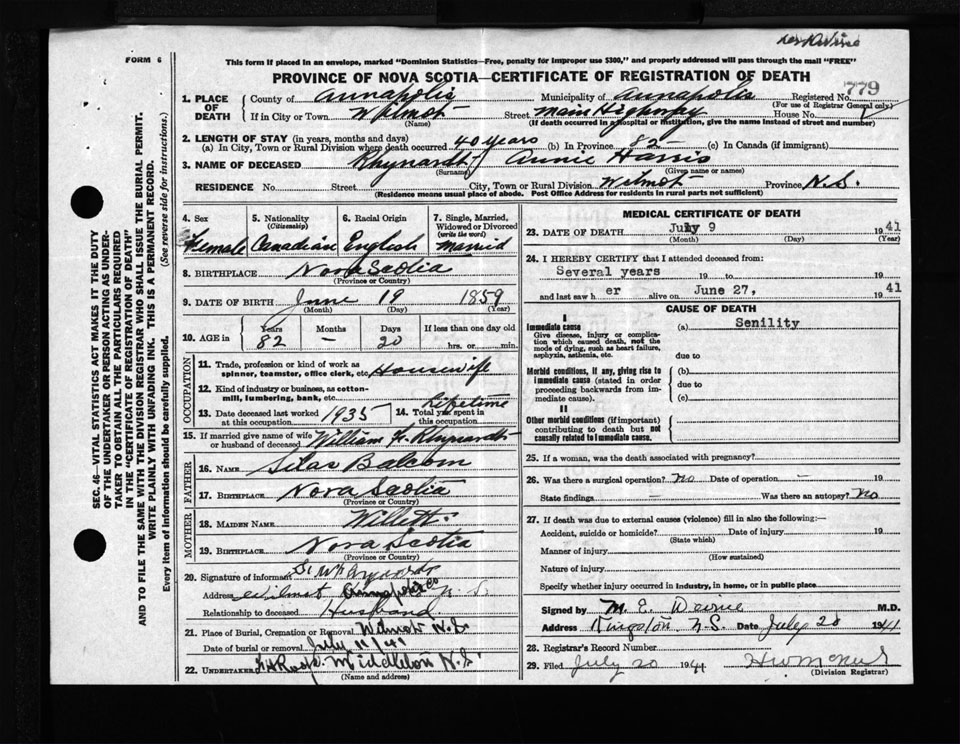 FORM 6
This form if placed in an envelope, marked "Dominion Statistics—Free, penalty for improper use $300," and properly addressed will pass through the mail "FREE"
PROVINCE OF NOVA SCOTIA—CERTIFICATE OF REGISTRATION OF DEATH
779
1. PLACE OF DEATH
County of Annapolis Municipality of Annapolis Registered No.
(For use of Registrar General only)
If in City or Town Wilmot Street Main Highway House No.
(Name) (If death occurred in a hospital or institution, give the name instead of street and number)
2. LENGTH OF STAY (in years, months and days)
(a) In City, Town or Rural Division where death occurred 40 years (b) In Province 82 - (c) In Canada (if immigrant)
3. NAME OF DECEASED Rhynardt Annie Harris
(Surname) (Given name or names)
RESIDENCE No. Street City, Town or Rural Division Wilmot Province N.S.
(Residence means usual place of abode. Post Office Address for residents in rural parts not sufficient)
4. Sex Female
5. Nationality (Citizenship) Canadian
6. Racial Origin English
7. Single, Married, Widowed or Divorced (write the word) Married
8. BIRTHPLACE Nova Scotia
(Province or Country)
9. DATE OF BIRTH June 19 1859
(Month) (Day) (Year)
10. AGE in Years Months Days If less than one day old
82 - 20 hrs. or min.
OCCUPATION
11. Trade, profession or kind of work as spinner, teamster, office clerk, etc. Housewife
12. Kind of industry or business, as cotton-mill, lumbering, bank, etc.
13. Date deceased last worked at this occupation 1935
14. Total yrs. spent in this occupation Lifetime
15. If married give name of wife or husband of deceased William H. Rhynardt
FATHER
16. NAME Silas Balcom
17. BIRTHPLACE Nova Scotia
(Province or Country)
MOTHER
18. MAIDEN NAME Willett
19. BIRTHPLACE Nova Scotia
(Province or Country)
20. Signature of informant
Address Wilmot Annapolis Co N.S.
Relationship to deceased Husband
21. Place of Burial, Cremation or Removal Wilmot N.S.
Date of burial or removal July 11/41
22. UNDERTAKER Middleton N.S.
(Name and address)
MEDICAL CERTIFICATE OF DEATH
23. DATE OF DEATH July 9 1941
(Month) (Day) (Year)
24. I HEREBY CERTIFY that I attended deceased from:
Several years 19 to 19
and last saw her alive on June 27, 1941
CAUSE OF DEATH
I
Immediate cause (a) Senility
Give disease, injury or complication which caused death, not the mode of dying, such as heart failure, asphyxia, asthenia, etc.
due to
Morbid conditions, if any, giving rise to immediate cause (stated in order proceeding backwards from immediate cause).
(b)
due to
(c)
II
Other morbid conditions (if important) contributing to death but not causally related to immediate cause.
25. If a woman, was the death associated with pregnancy?
26. Was there a surgical operation? No Date of operation - 19
State findings - Was there an autopsy? No
27. If death was due to external causes (violence) fill in also the following:—
Accident, suicide or homicide? Date of injury 19
(State which)
Manner of injury
(How sustained)
Nature of injury
Specify whether injury occurred in industry, in home, or in public place
Signed by M. E. M.D.
Address Kingston N.S. Date July 20 1941
28. Registrar's Record Number
29. Filed July 20 1941
(Division Registrar)
SEC. 46—VITAL STATISTICS ACT MAKES IT THE DUTY
OF THE UNDERTAKER OR PERSON ACTING AS UNDER-
TAKER TO OBTAIN ALL THE PARTICULARS REQUIRED
IN THE "CERTIFICATE OF REGISTRATION OF DEATH"
AND TO FILE THE SAME WITH THE DIVISION REGISTRAR WHO SHALL ISSUE THE BURIAL PERMIT.
WRITE PLAINLY WITH UNFADING INK. THIS IS A PERMANENT RECORD.
Every item of information should be carefully supplied. (See reverse side for instructions.)